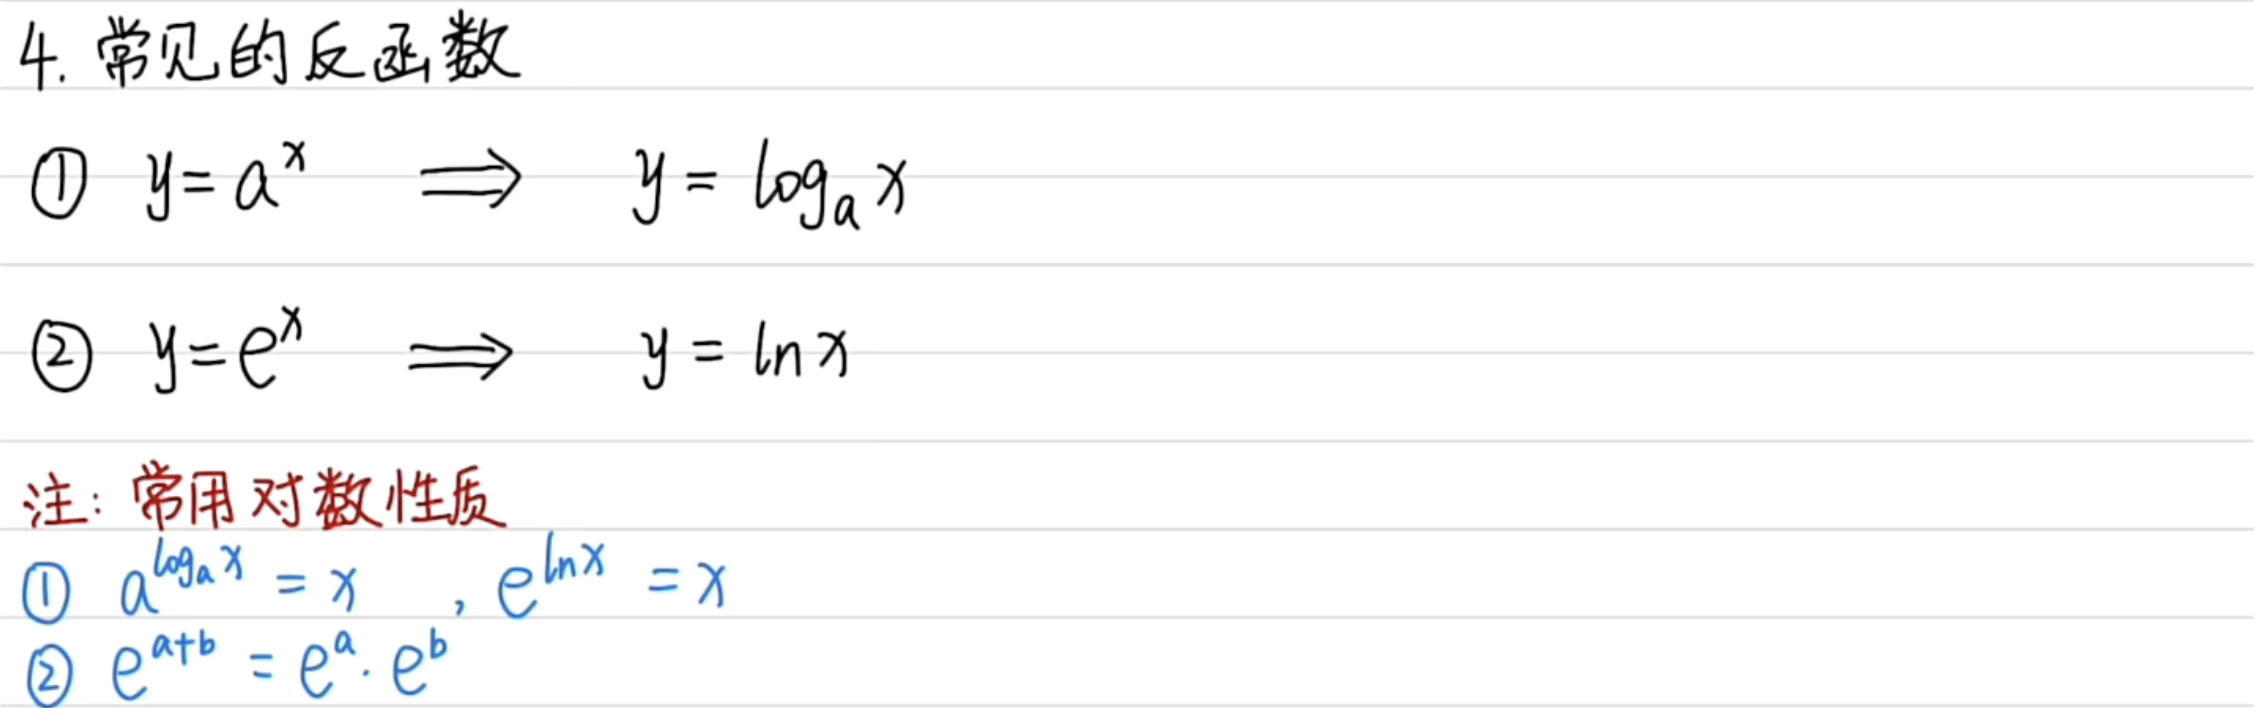 4. 常见的反函数
① y = a^x ⟹ y = log_a x
② y = e^x ⟹ y = ln x
注: 常用对数性质
① a^{log_a x} = x , e^{ln x} = x
② e^{a+b} = e^a · e^b